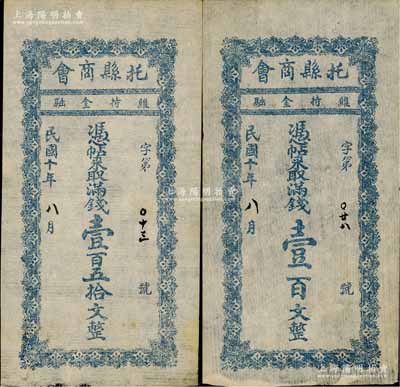 上海陽明拍賣
會商縣托
融金持維
字第〇十三號
憑帖來取滿錢壹百五拾文整
民國十年八月
上海陽明拍賣
會商縣托
融金持維
字第〇廿八號
憑帖來取滿錢壹百文整
民國十年八月